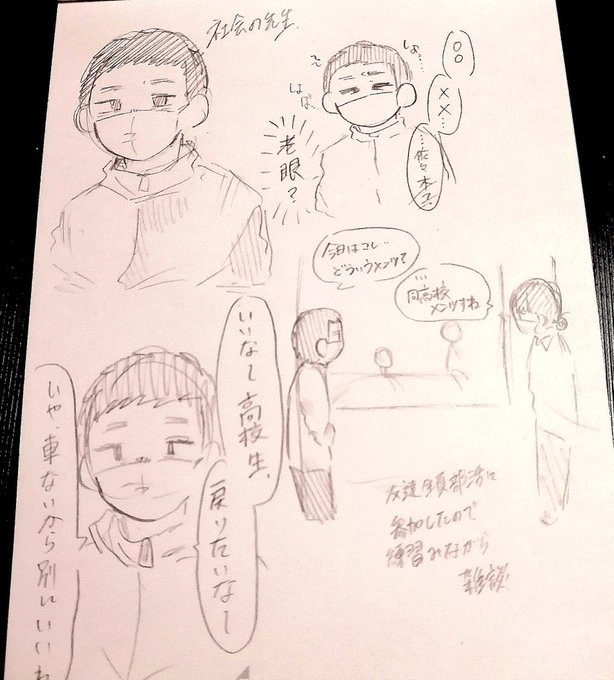 社会の先生
〇〇
××…
…佐々木マ、
しょ…
老眼?
今日はコレ…
どういうメンツで
…
同高校
メンツすね
いいなー高校生、
戻りたいなー
いや、車ないから別にいいわ
友達全員部活に
参加したので
練習みながら
雑談